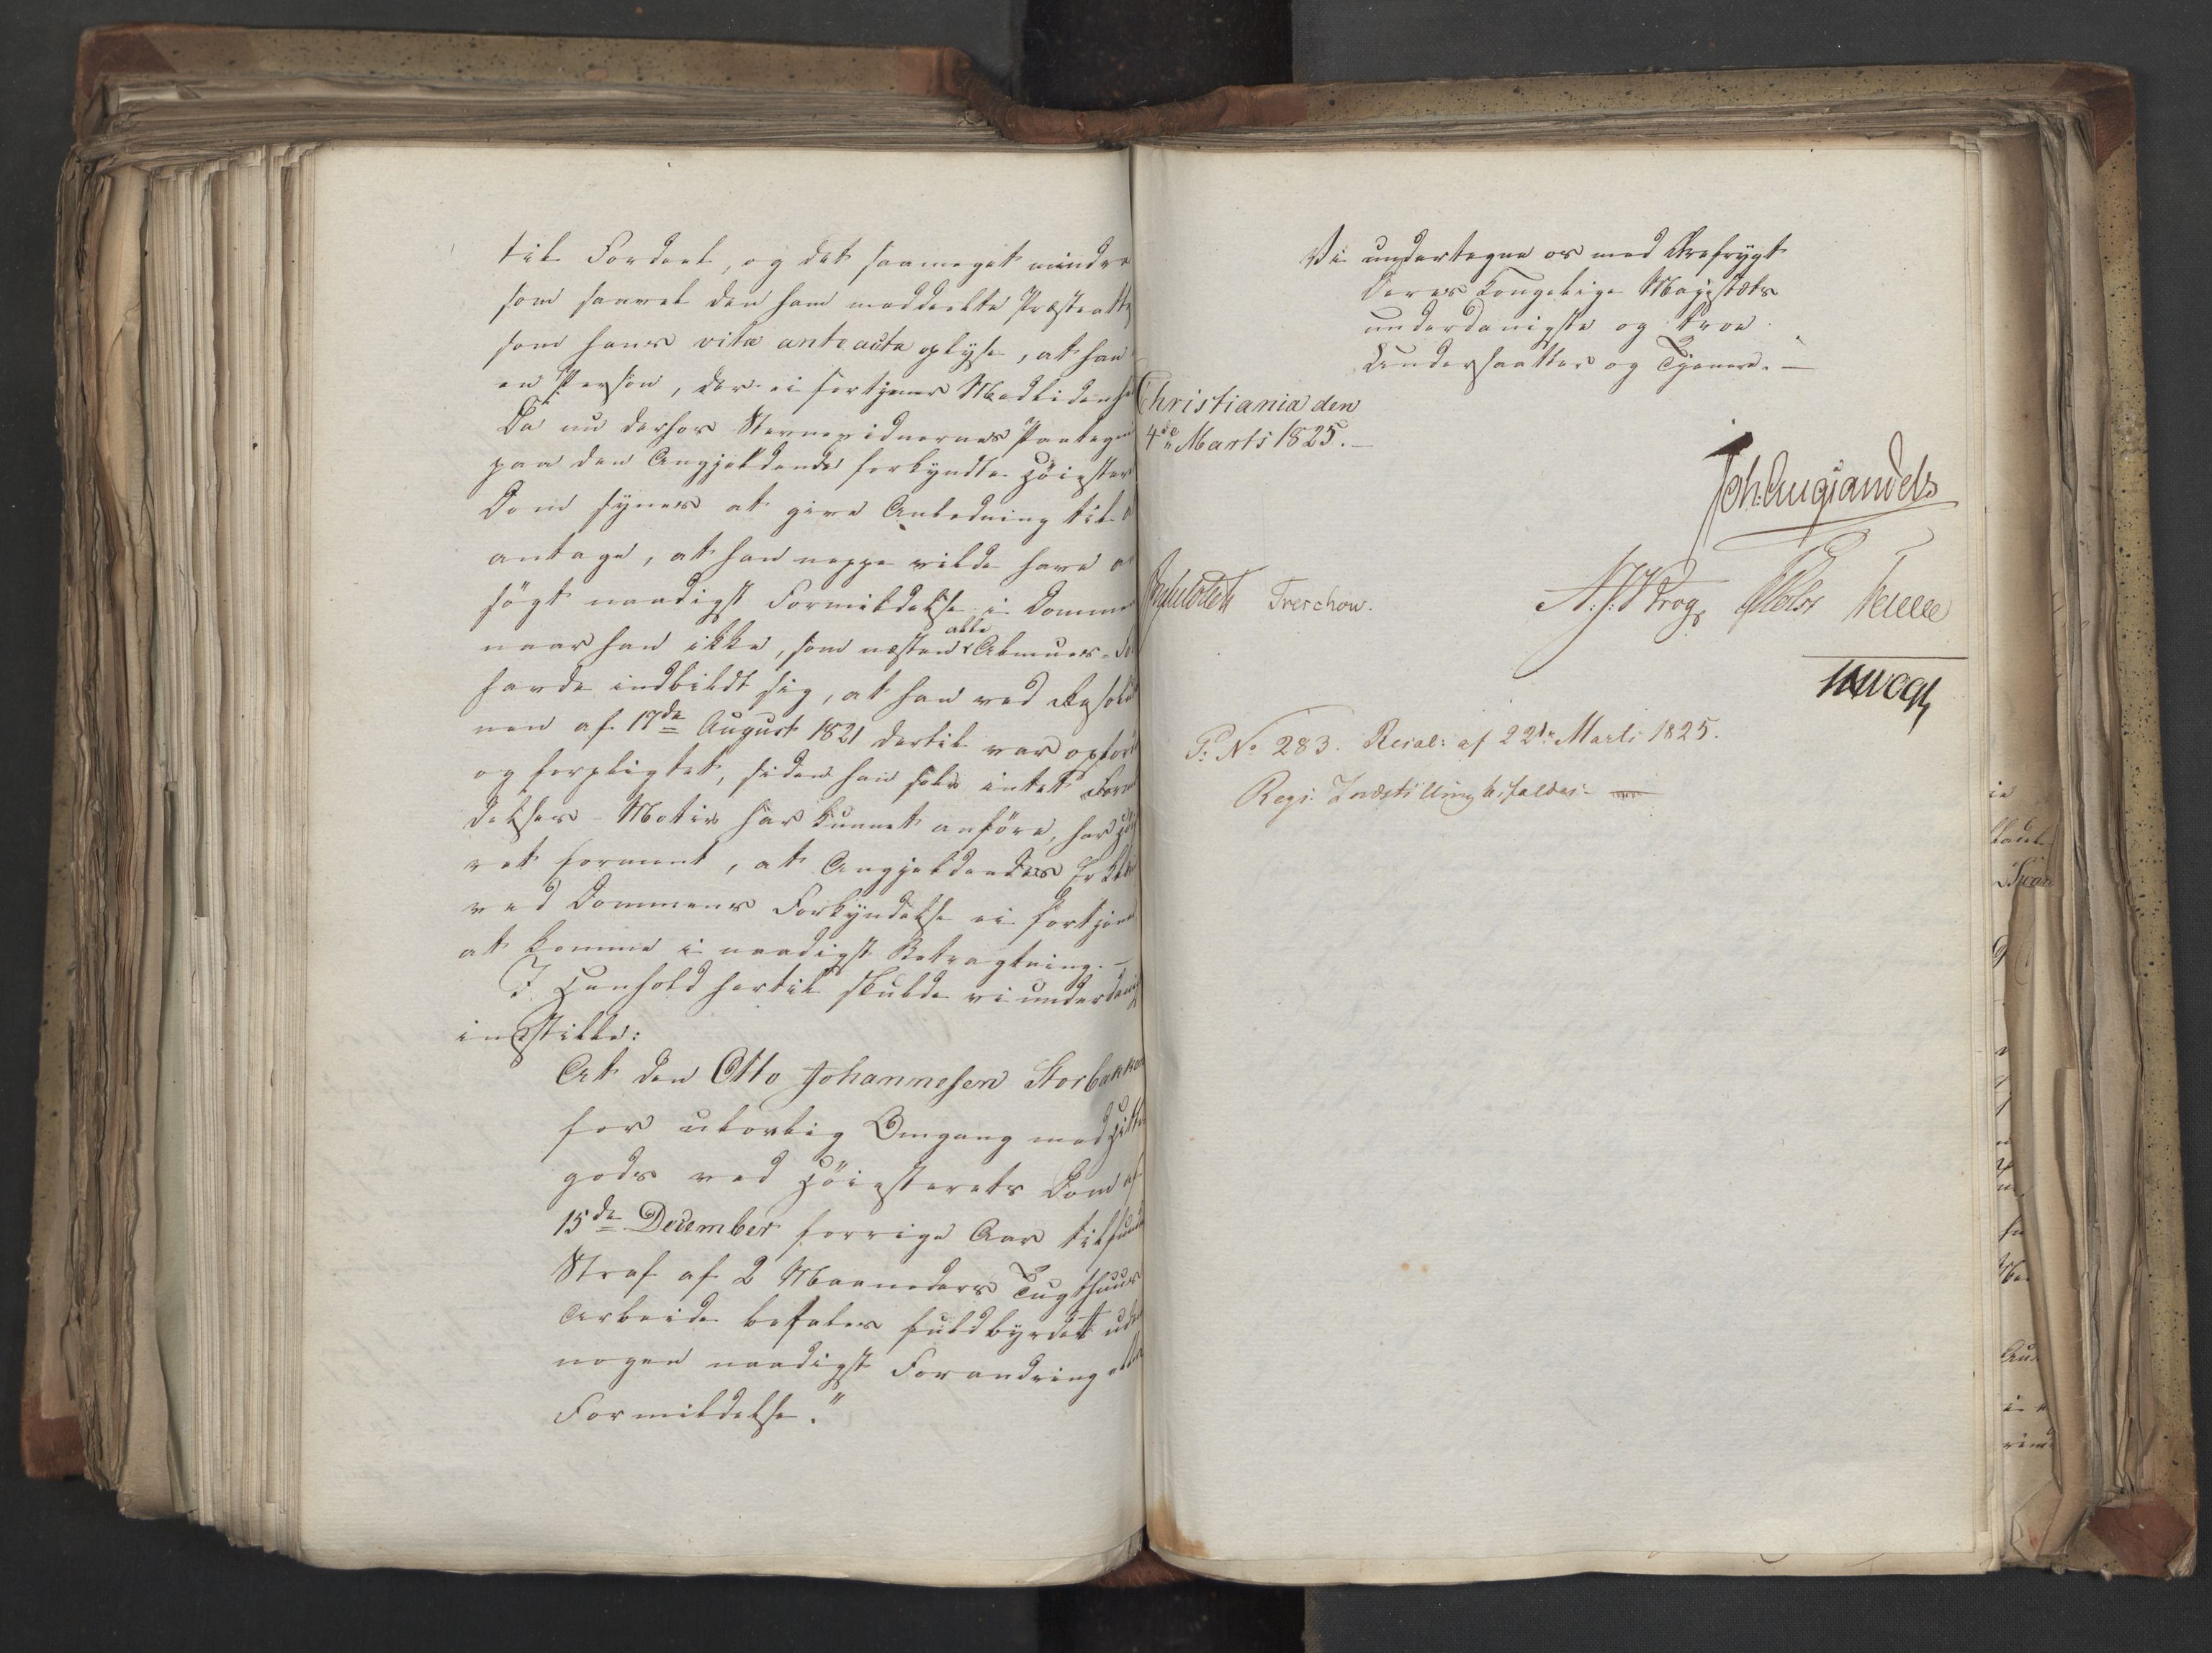 til Fordeel, og det saameget mindre
som saavel den ham meddeelte Præsteatt
som hans vita anteacta oplyse, at han
en Person, der ei fortjener Medlidenh
Da nu derhos Stevnevidnernes Paategn
paa den Angjeldende forkyndte Höiester
Dom synes at give Anledning til a
antage, at han neppe vilde have an
sögt naadigst Formildelse i Dommen
naar han ikke, som næsten alle Almues-Fo
havde indbildt sig, at han ved Resolu
nen af 17de August 1821 dertil var opford
og forpligtet, siden han selv intet Formil
delses-Motiv har kunnet anföre, har Höi
ret formeent, at Angjeldendes Erklæ
ved Dommens Forkyndelse ei fortjene
at komme i naadigst Betragtning. —
I Henhold hertil skulde vi underdanig
indstille:
At den Otto Johannesen Storbakken
for ulovlig Omgang med Hitte
gods ved Höiesterets Dom af
15de December forrige Aar tilfund
Straf af 2 Maaneders Tugthuus
Arbeide befales fuldbyrdet uden
nogen naadigst Forandring eller
Formildelse."
Vi undertegne os med Ærefrygt
Deres Kongelige Majestæts
underdanigste og troe
Undersaatter og Tjenere. —
Christiania den
4de Marts 1825. —
Joh. Aug. Sandels
Treschow.
A. J. Krog
Vogt
P. No 283. Resol: af 22de Marts 1825.
Regj. Indstilling bifaldes. —